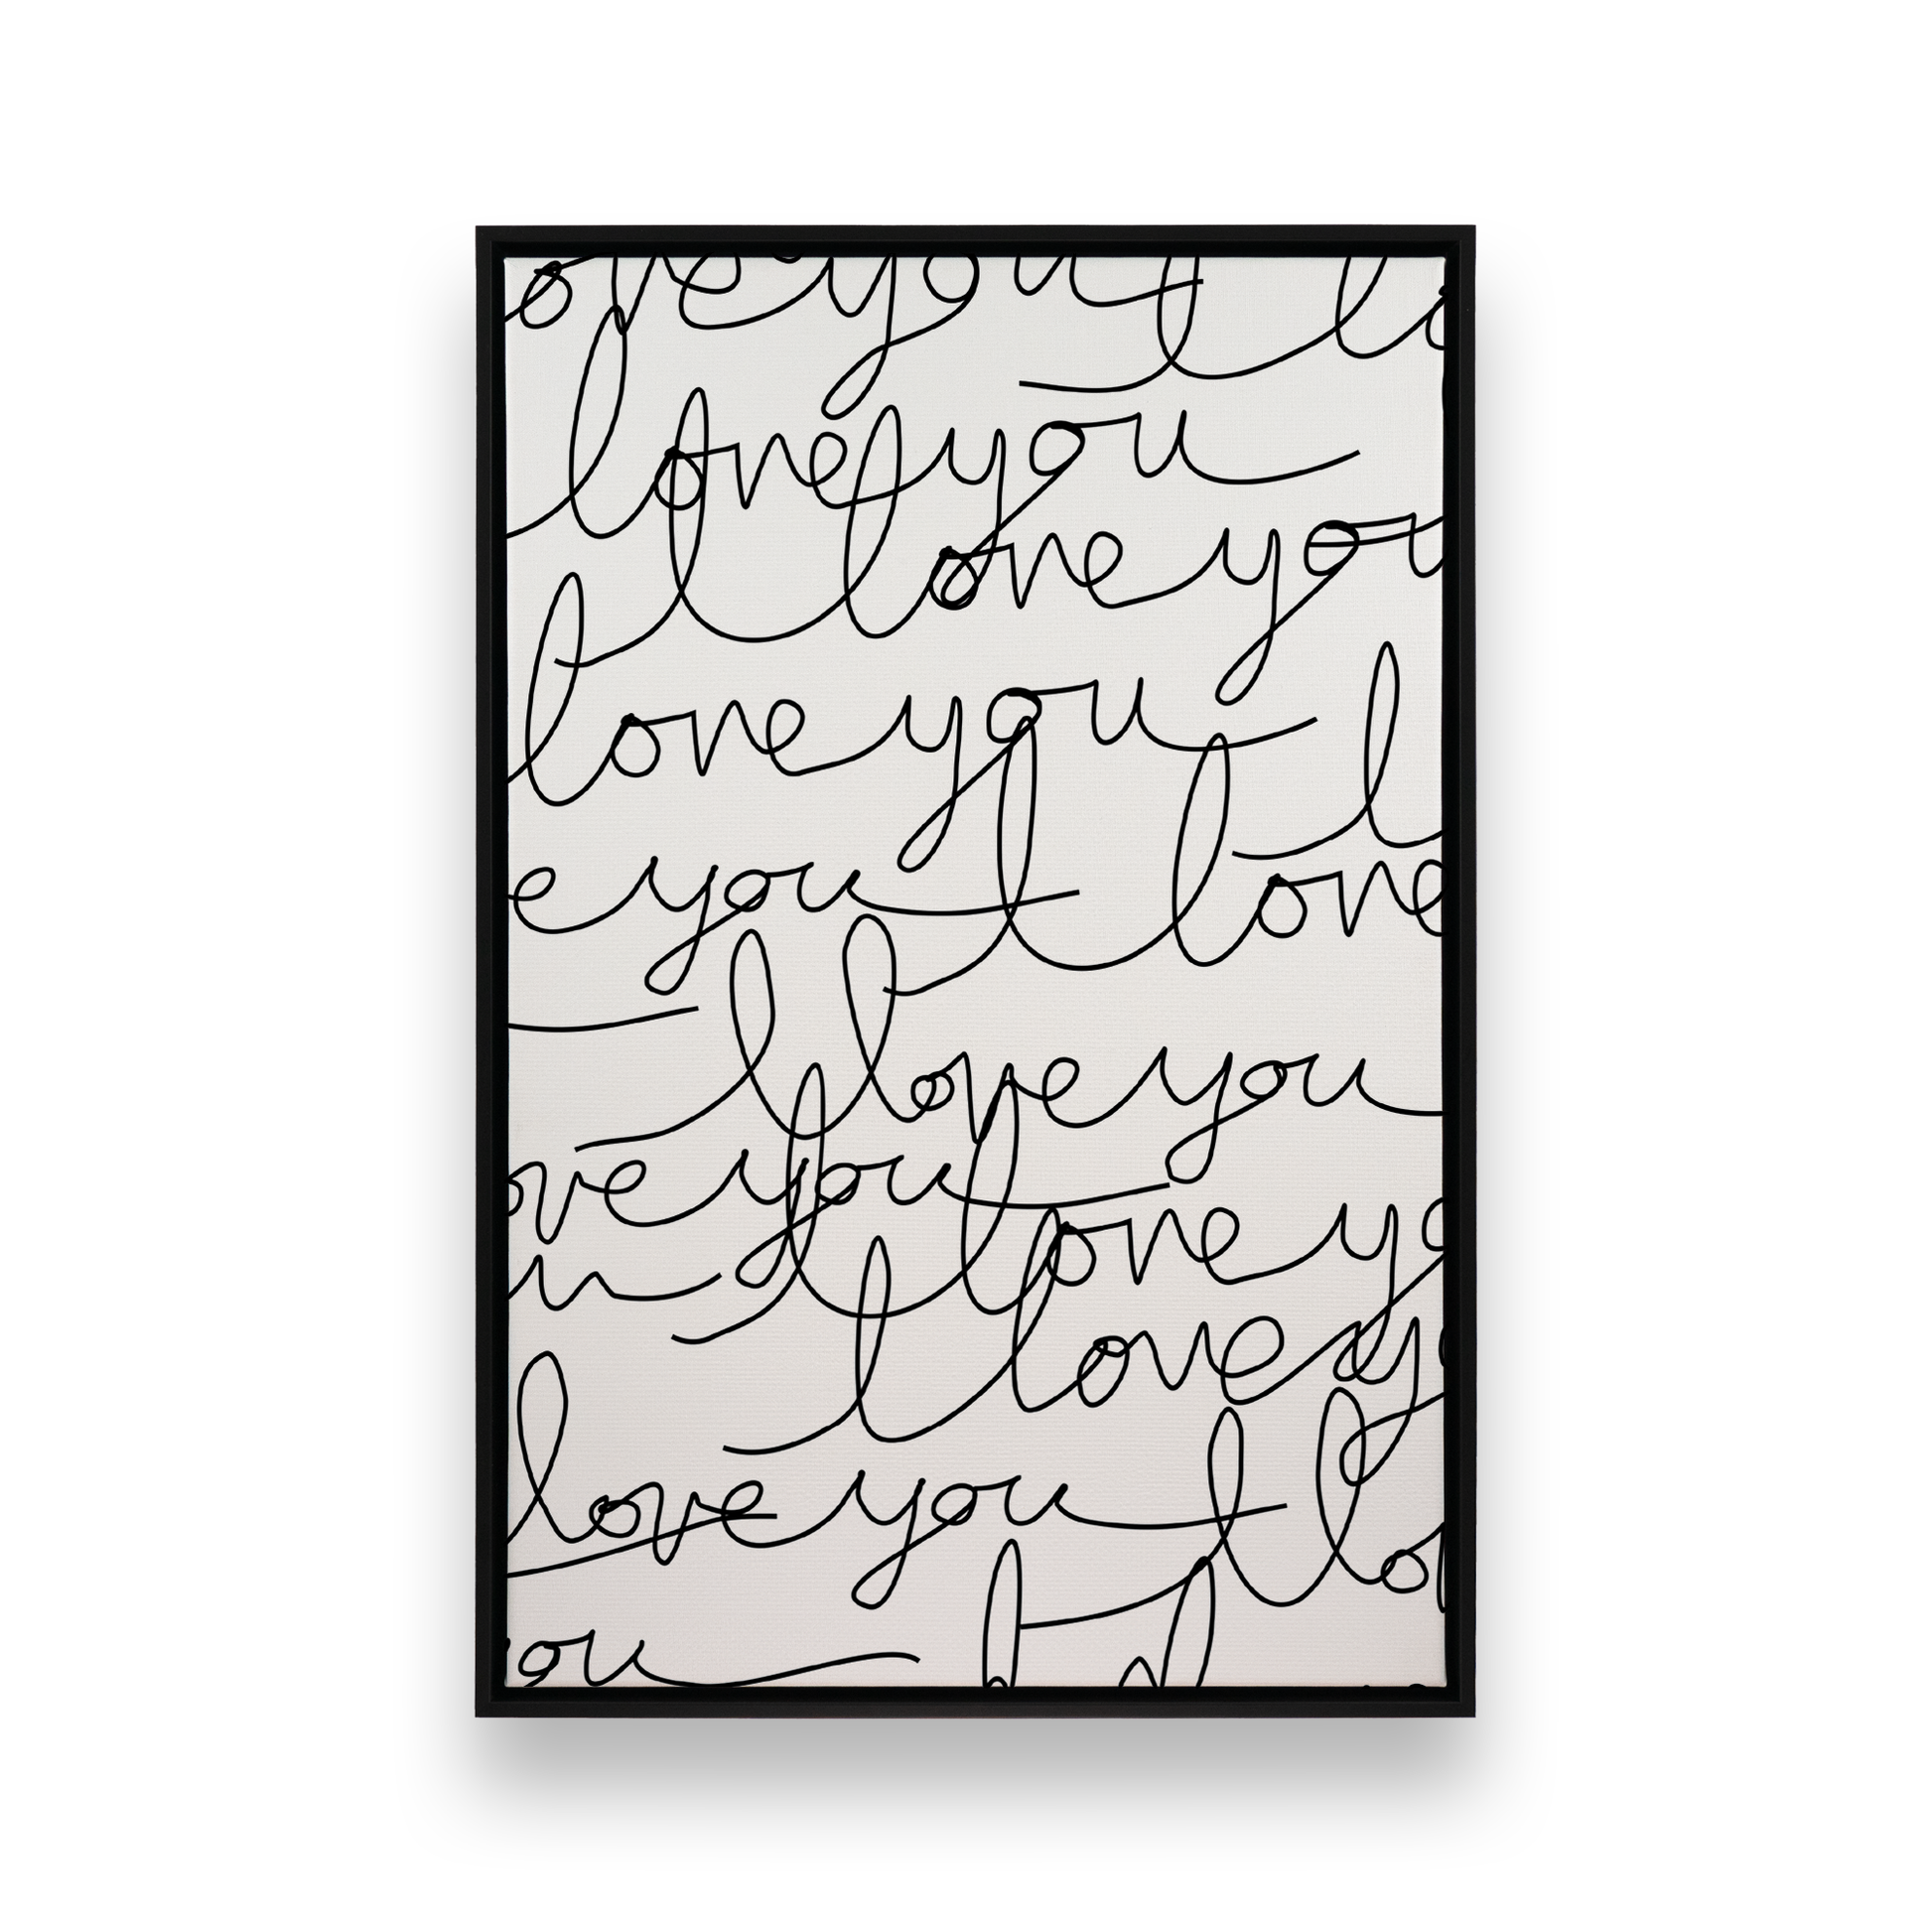 ove you I lo
love you
I love you
love you I
e you I love
I love you
ove you
I love yo
u
I love y
love you
I lov
ou I l